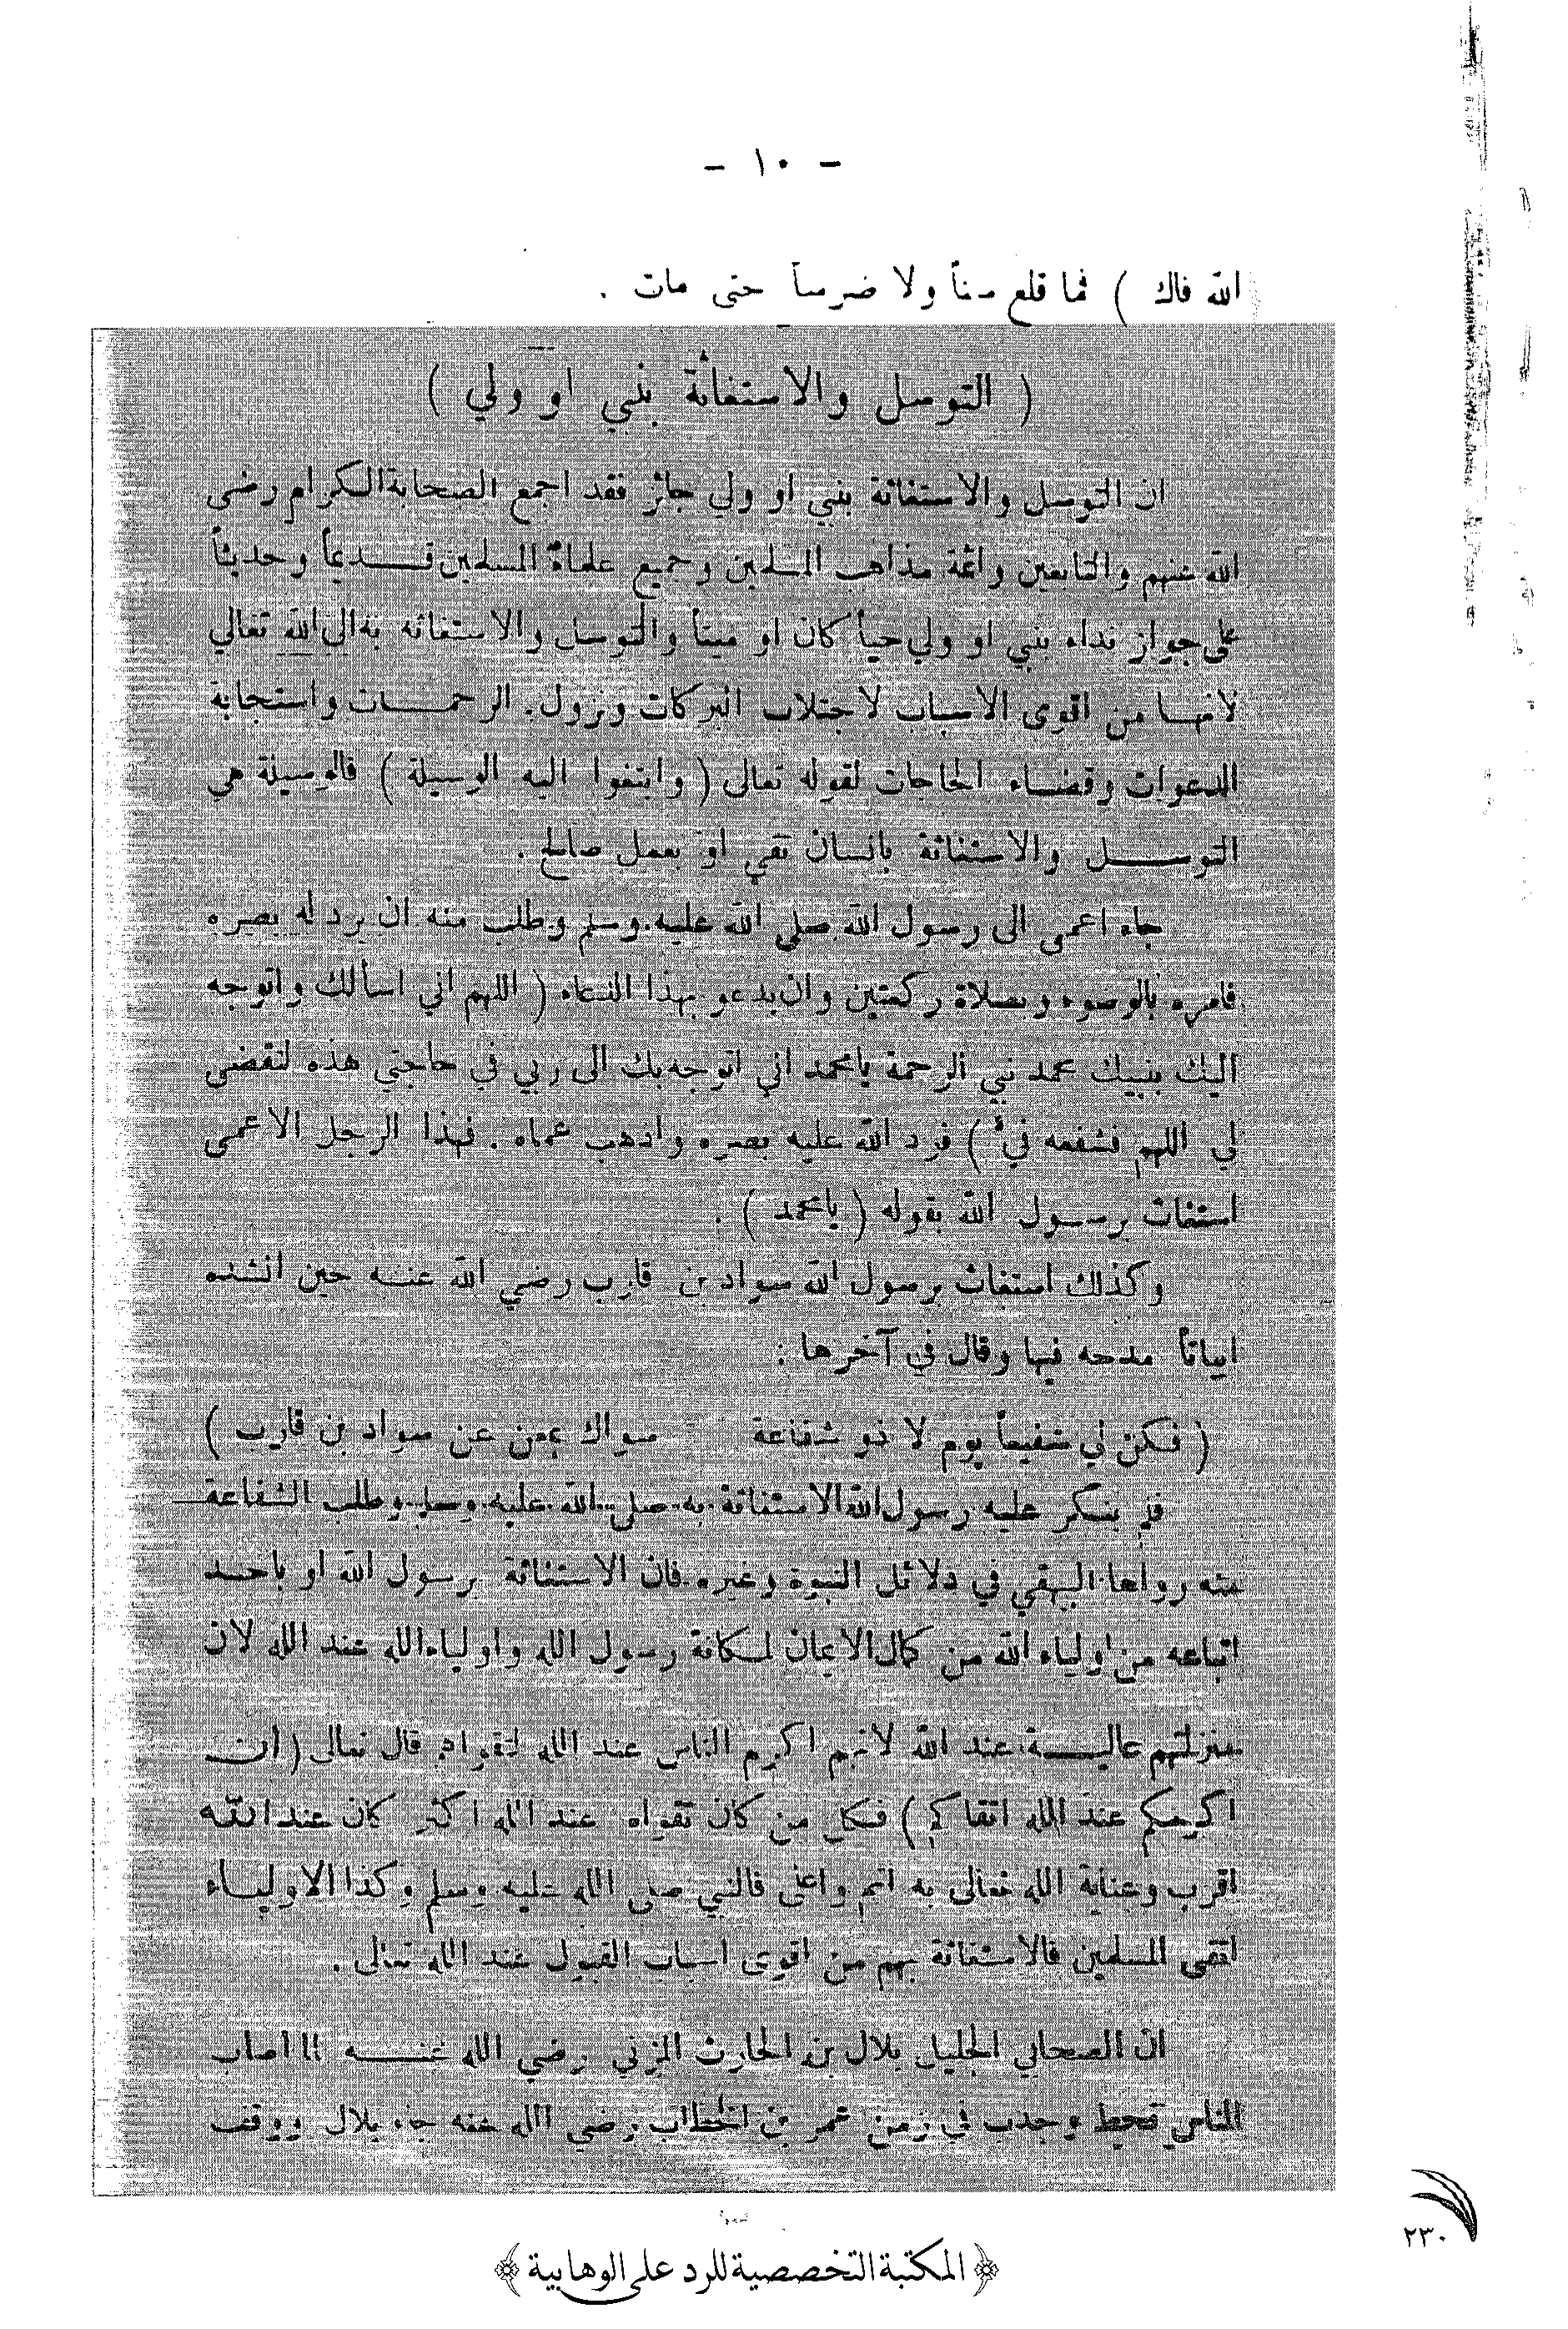 - ١٠ -
الله فاك ) فما قلع سناً ولا ضرساً حتى مات .
( التوسل والاستغاثة بنبي او ولي )
ان التوسل والاستغاثة بنبي او ولي جائز فقد اجمع الصحابة الكرام رضي
الله عنهم والتابعين وائمة مذاهب المسلمين وجميع علماء المسلمين قديماً وحديثاً
على جواز نداء بنبي او ولي حياً كان او ميتاً والتوسل والاستغاثه به الى الله تعالى
لانهما من اقوى الاسباب لاجتلاب البركات ونزول الرحمات واستجابة
الدعوات وقضاء الحاجات لقوله تعالى ( وابتغوا اليه الوسيلة ) فالوسيلة هي
التوسل والاستغاثة بانسان تقي او بعمل صالح .
جاء اعمى الى رسول الله صلى الله عليه وسلم وطلب منه ان يرد له بصره
فامره بالوضوء وبصلاة ركعتين وان يدعو بهذا الدعاء ( اللهم اني اسألك واتوجه
اليك بنبيك محمد نبي الرحمة يا محمد اني اتوجه بك الى ربي في حاجتي هذه لتقضى
لي اللهم فشفعه فيّ ) فرد الله عليه بصره واذهب عماه . فهذا الرجل الاعمى
استغاث برسول الله بقوله ( يا محمد ) .
وكذلك استغاث برسول الله سواد بن قارب رضي الله عنه حين انشده
ابياتاً مدحه فيها وقال في آخرها :
( فكن لي شفيعاً يوم لا ذو شفاعة سواك بمغن عن سواد بن قارب )
فلم ينكر عليه رسول الله الاستغاثة به صلى الله عليه وسلم وطلب الشفاعة
منه رواها البيهقي في دلائل النبوة وغيره فان الاستغاثة برسول الله او باحد
اتباعه من اولياء الله من كمال الايمان لمكانة رسول الله واولياء الله عند الله لان
منزلتهم عالية عند الله لانهم اكرم الناس عند الله لتقواهم قال تعالى ( ان
اكرمكم عند الله اتقاكم ) فكل من كان تقواه عند الله اكثر كان عند الله
اقرب وعناية الله تعالى به اتم واعلى فالنبي صلى الله عليه وسلم وكذا الاولياء
اتقى المسلمين فالاستغاثة بهم من اقوى اسباب القبول عند الله تعالى .
ان الصحابي الجليل بلال بن الحارث المزني رضي الله عنه لما اصاب
الناس قحط وجدب في زمن عمر بن الخطاب رضي الله عنه جاء بلال ووقف
٢٣٠
﴿ المكتبة التخصصية للرد على الوهابية ﴾